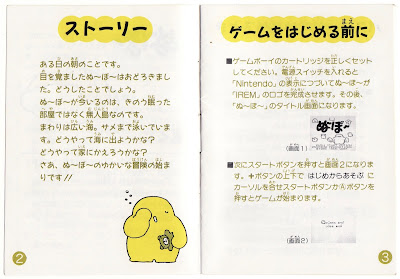 ストーリー
ある日の朝のことです。
目を覚ましたぬ〜ぼ〜はおどろきまし
た。どうしたことでしょう。
ぬ〜ぼ〜が今いるのは、きのう眠った
部屋ではなく無人島なのです。
まわりは広い海。サメまで泳いでいま
す。どうやって海に出ようかな？
どうやって家にかえろうかな？
さあ、ぬ〜ぼ〜のゆかいな冒険の始ま
りです!!
2
ゲームをはじめる前に
■ゲームボーイのカートリッジを正しくセット
してください。電源スイッチを入れると
「Nintendo」の表示につづいてぬ〜ぼ〜が
「IREM」のロゴを完成させます。その後、
「ぬ〜ぼ〜」のタイトル画面になります。
ぬ〜ぼ〜
(画面1)
■次にスタートボタンを押すと画面2になりま
す。✚ボタンの上下で はじめからあそぶ に
カーソルを合せスタートボタンかⒶボタンを
押すとゲームが始まります。
(画面2)
3